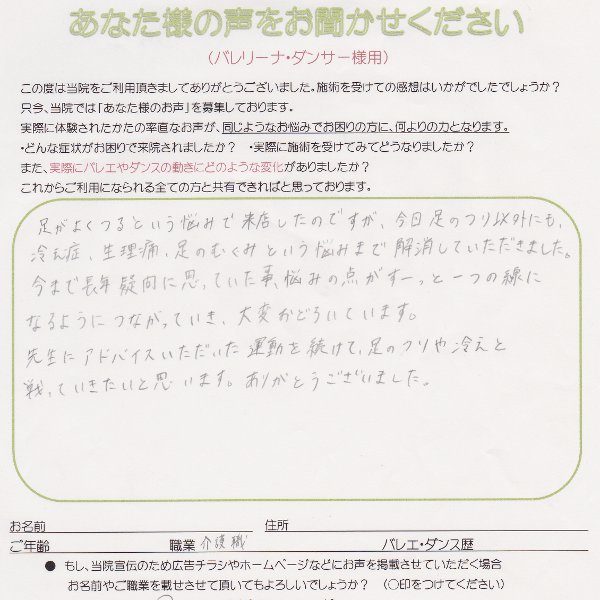 あなた様の声をお聞かせください
(バレリーナ・ダンサー様用)
この度は当院をご利用頂きましてありがとうございました。施術を受けての感想はいかがでしたでしょうか?
只今、当院では「あなた様のお声」を募集しております。
実際に体験されたかたの率直なお声が、同じようなお悩みでお困りの方に、何よりの力となります。
・どんな症状がお困りで来院されましたか? ・実際に施術を受けてみてどうなりましたか?
また、実際にバレエやダンスの動きにどのような変化がありましたか?
これからご利用になられる全ての方と共有できればと思っております。
足がよくつるという悩みで来店したのですが、今日足のつり以外にも、
冷え症、生理痛、足のむくみという悩みまで解消していただきました。
今まで長年疑問に思っていた事、悩みの点がすーっと一つの線に
なるようにつながっていき、大変おどろいています。
先生にアドバイスいただいた運動を続けて、足のつりや冷えと
戦っていきたいと思います。ありがとうございました。
お名前 住所
ご年齢 職業 介護職 バレエ・ダンス歴
● もし、当院宣伝のため広告チラシやホームページなどにお声を掲載させていただく場合
お名前やご職業を載せさせて頂いてもよろしいでしょうか? (○印をつけてください)